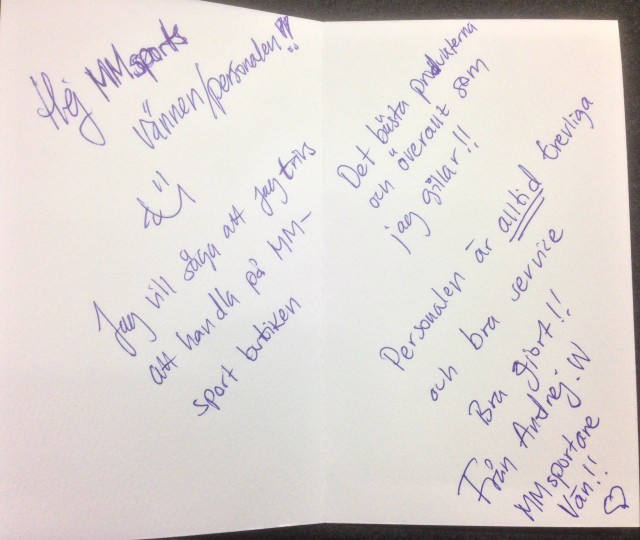 Hej MM sports
vännen/personalen!!
Jag vill säga att jag trivs
att handla på MM-
sport butiken
Det bästa produkterna
och överallt som
jag gillar!!
Personalen är alltid trevliga
och bra service
Bra gjort!!
Från Andrej. W
MM sportare
Vän!!